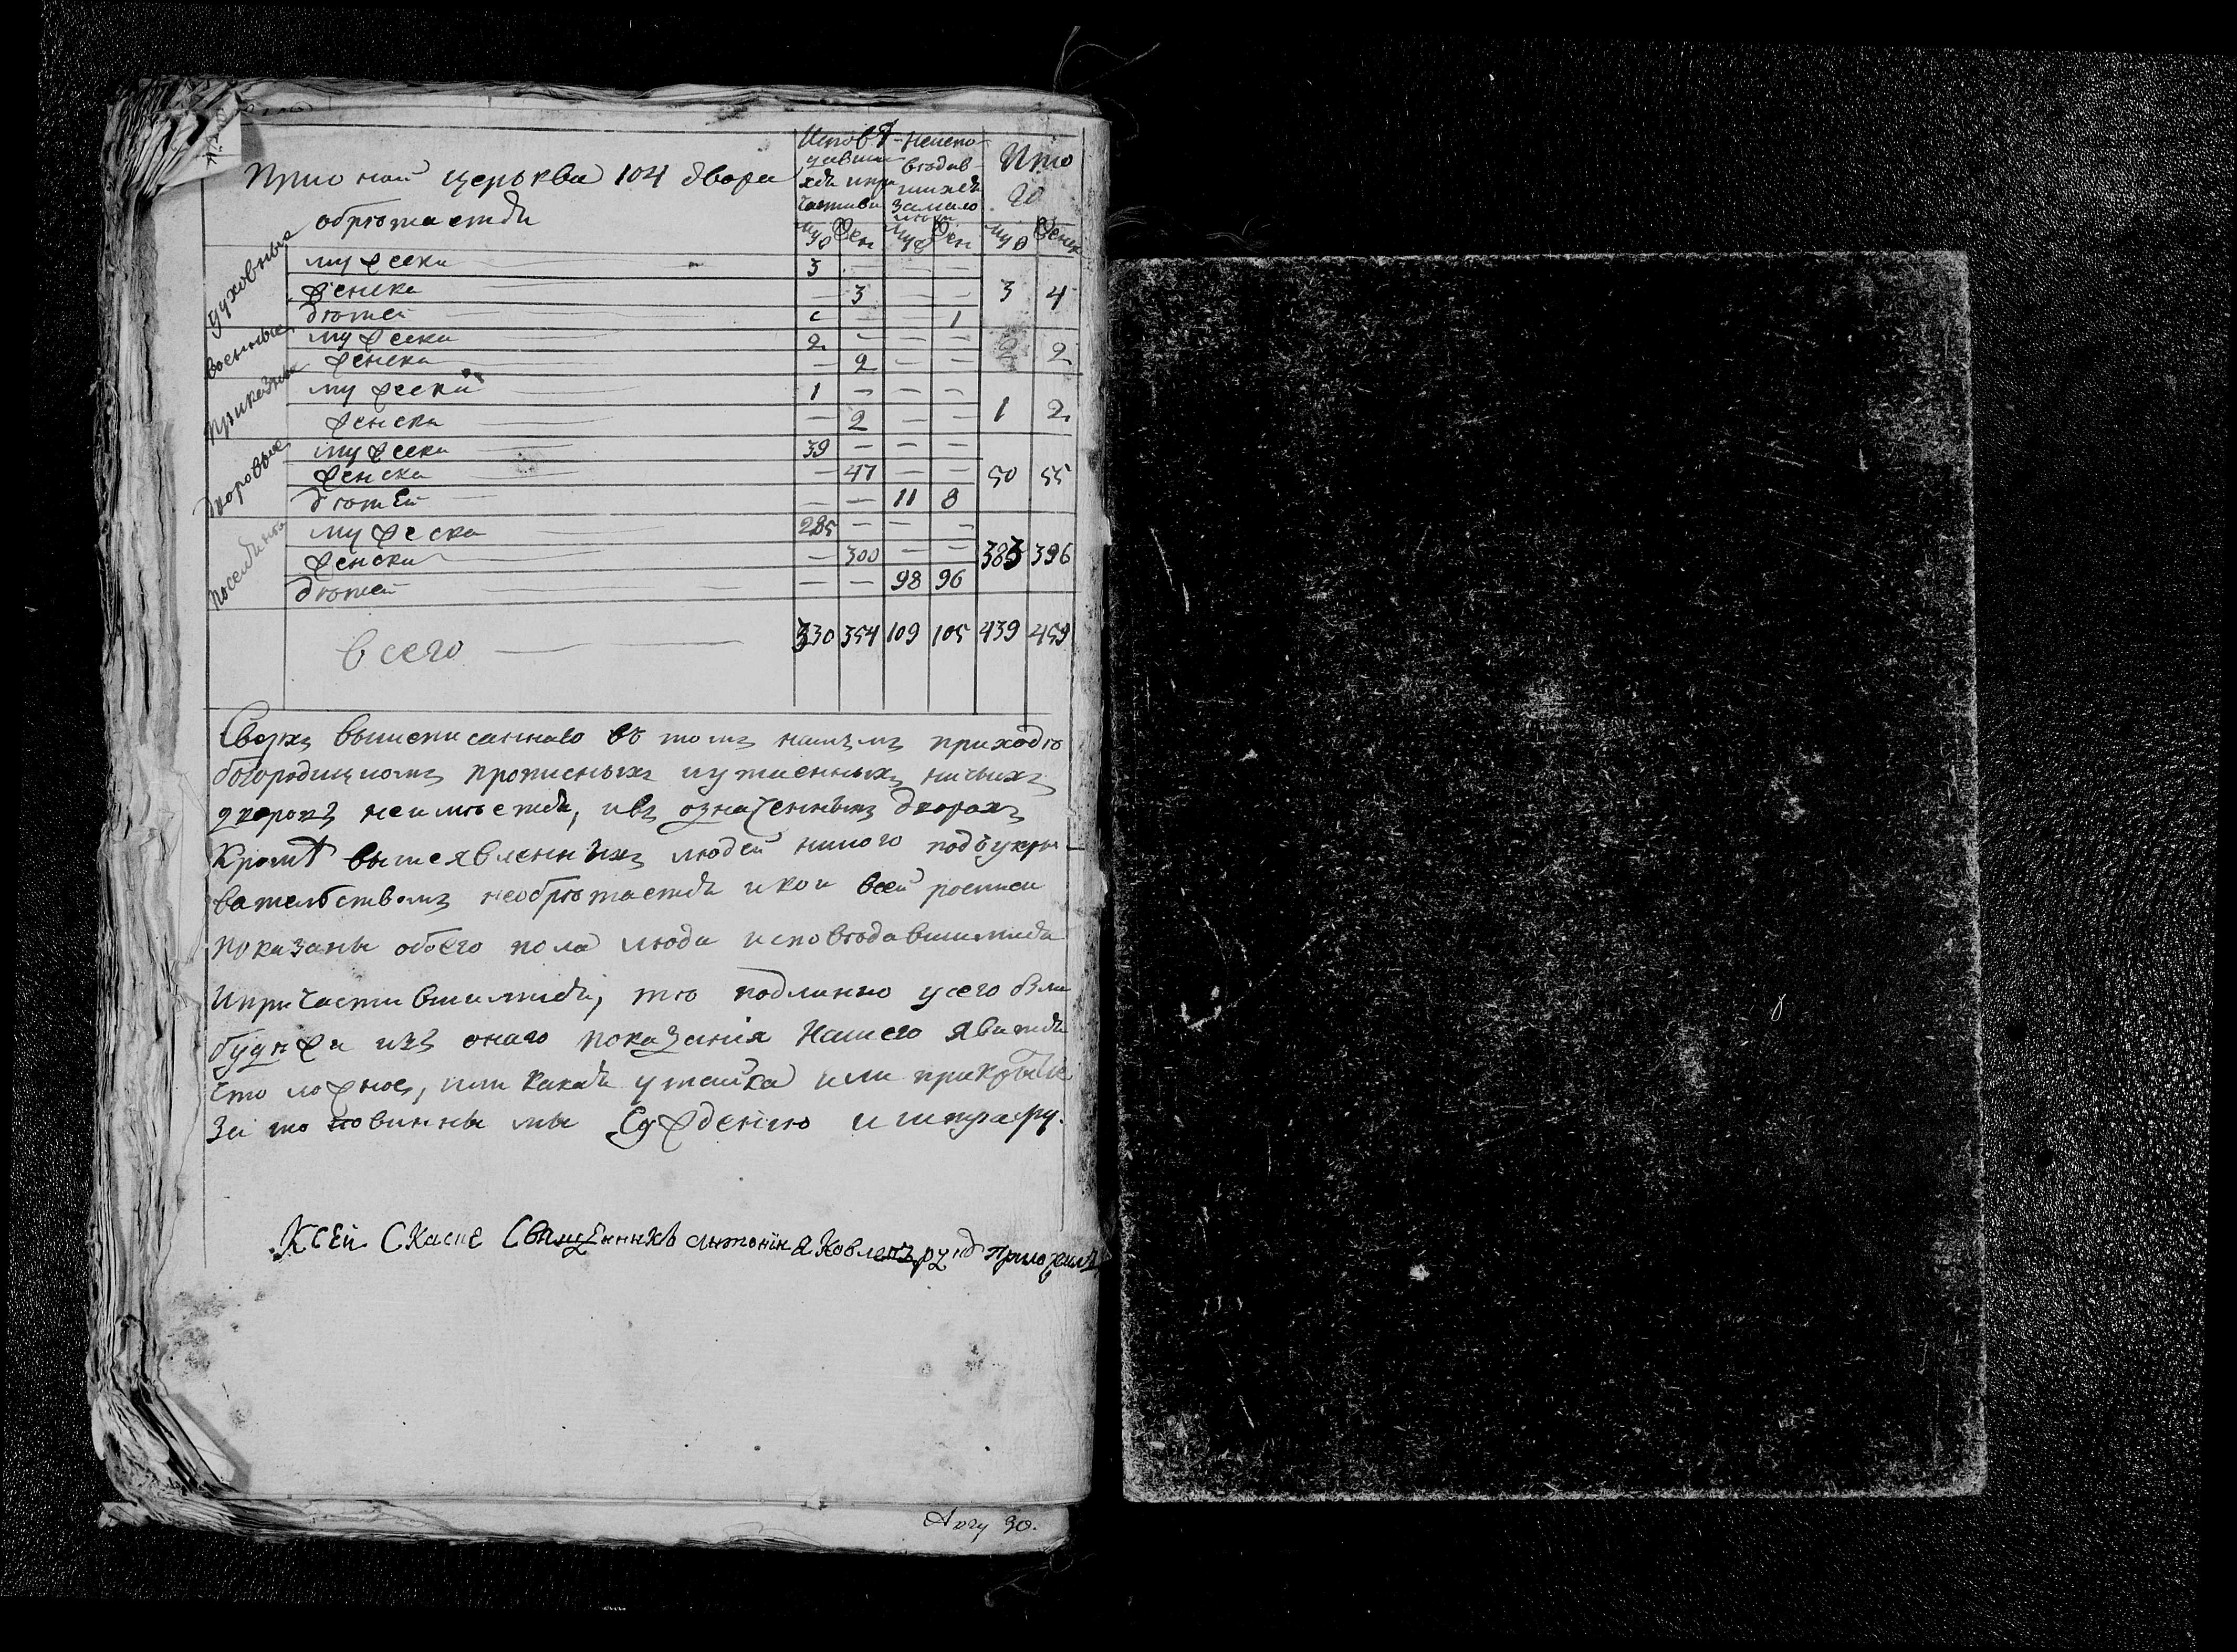 При оной церькви 104 двора
обрѣтается
Исповѣдавшихся и причастивш
неисповѣдавшихся за малолѣт
Итого
муж жен муж жен муж женск
Духовные
мужеска 3 — — —
женска — 3 — — 3 4
дѣтей — — 1
Военные
мужеска 2 — — —
женска — 2 — — 2 2
Приказные
мужеска 1 — — —
женска — 2 — — 1 2
Дворовые
мужеска 39 — — —
женска — 47 — — 50 55
дѣтей — — 11 8
Поселяне
мужеска 285 — — —
женска — 300 — — 383 396
дѣтей — — 98 96
Всего 330 354 109 105 439 459
Сверхъ вышеписаннаго въ томъ нашемъ приходѣ
богородицкомъ прописныхъ и утаенныхъ ничьихъ
дворовъ неимѣется, и въ означенныхъ дворахъ
Кромѣ вышеявленныхъ людей никого подъ укры-
вательствомъ необрѣтается и кои в сей росписи
показаны обоего пола люди исповѣдавшимися
И причастившимися, тѣ подлинно у сего были
буде жъ и изъ онаго показанія Нашего явится
что ложное, или какая утайка или прикрытіе
за то повинны мы Суждению и штрафу.
К сей Скаске Священникъ Антоній Яковлевъ руку приложилъ